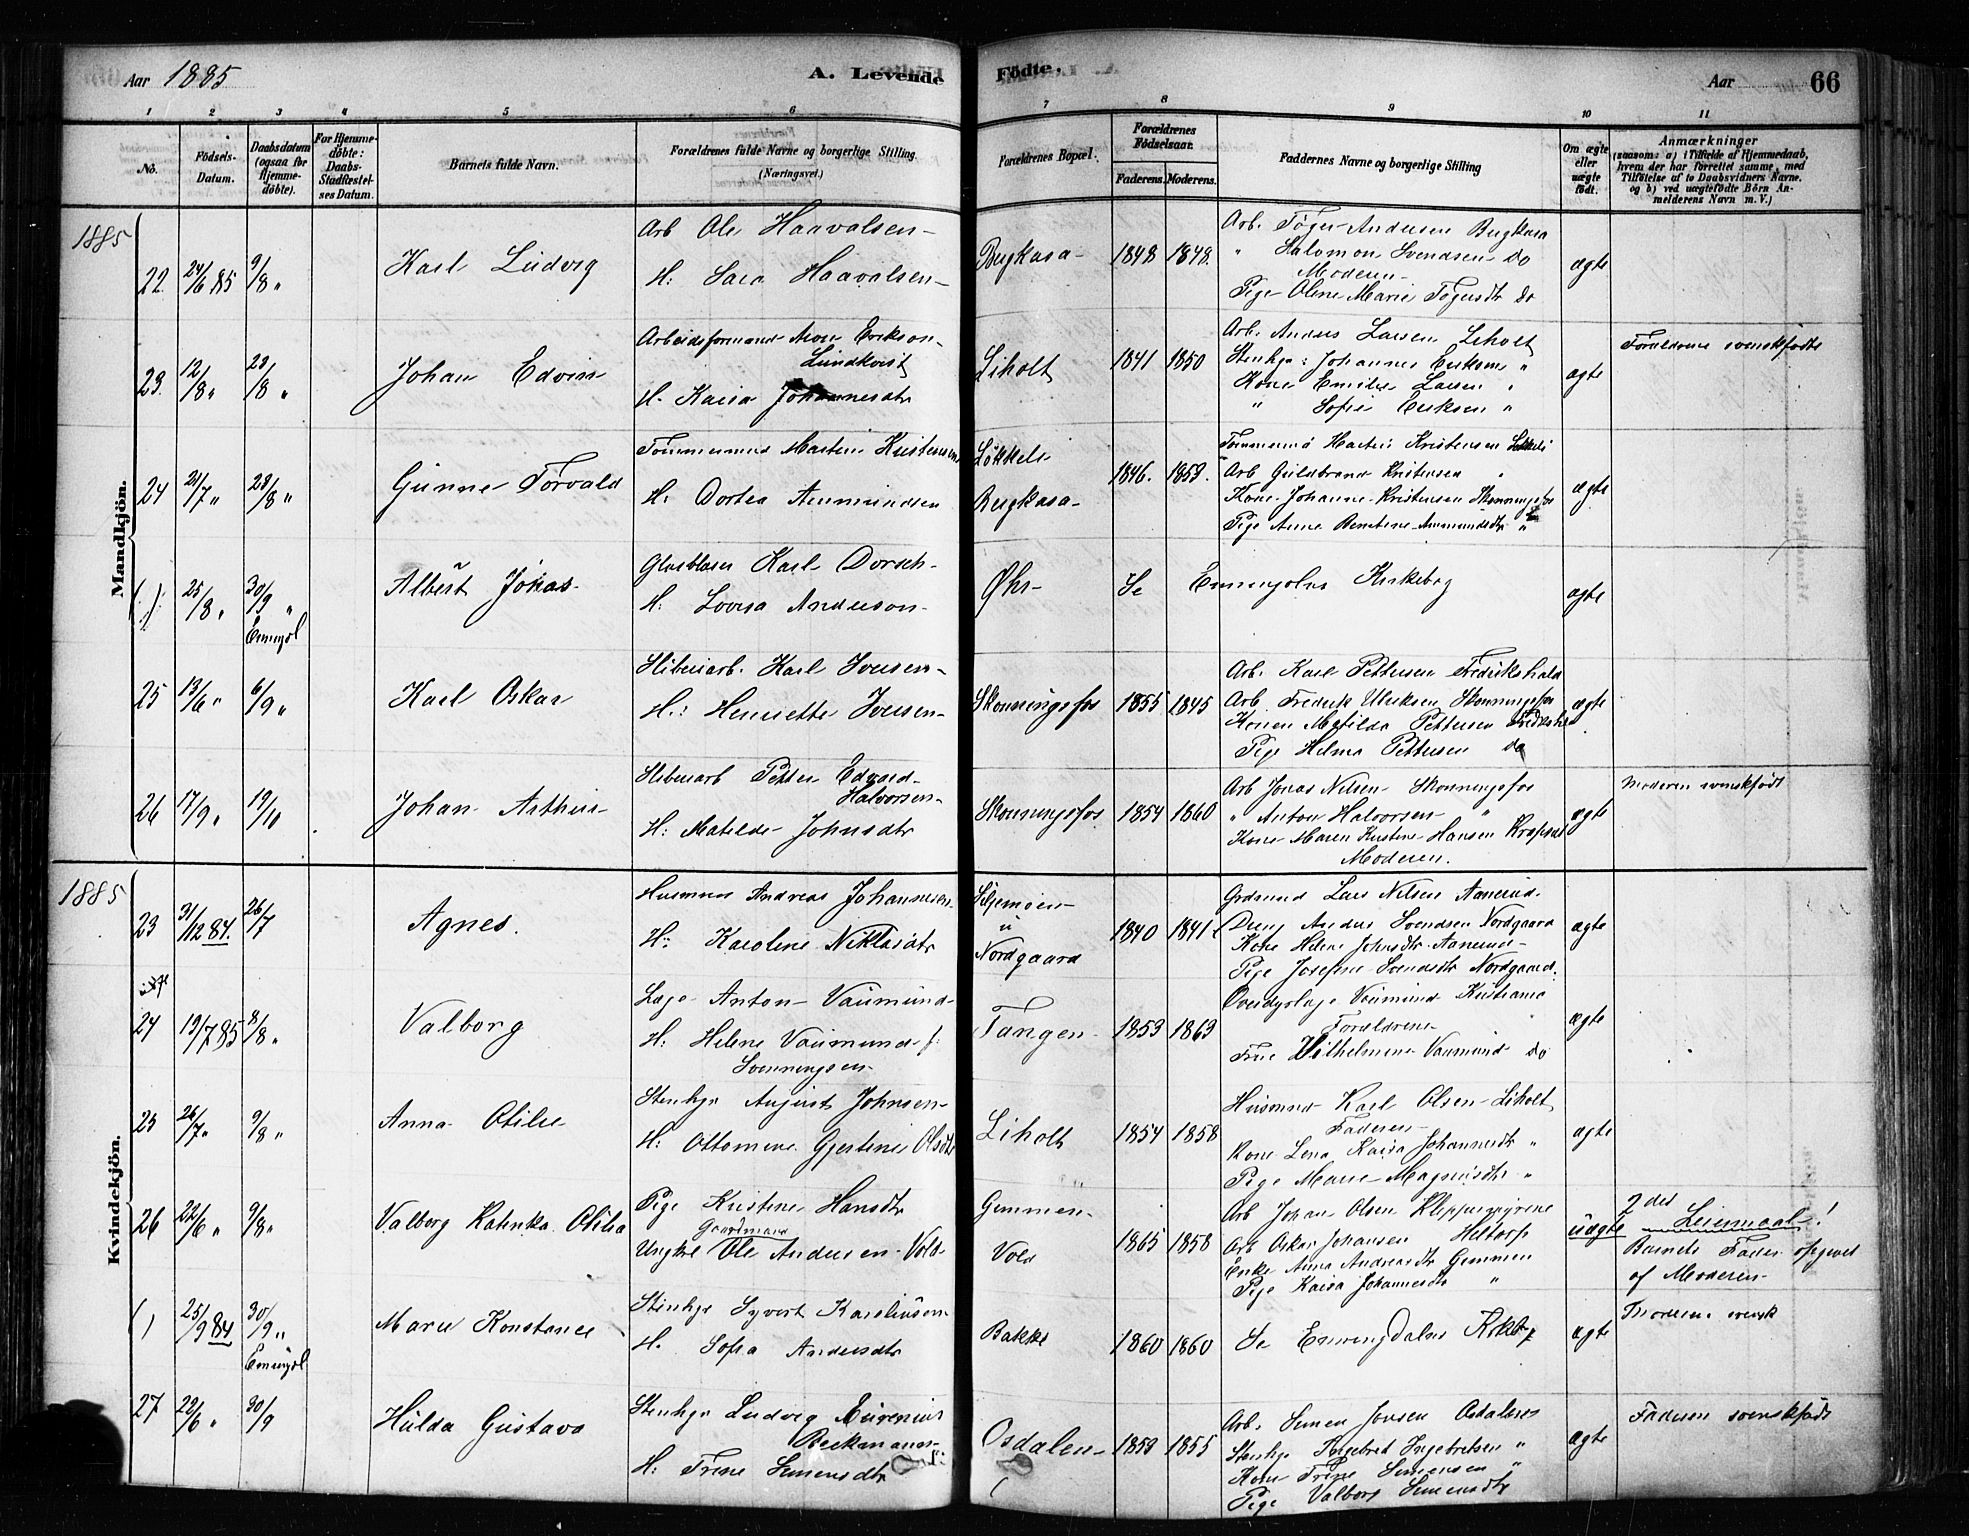 Aar 1885
A. Levende
Födte.
Aar
66
1 2 3 4 5 6 7 8 9 10 11
No.
Födsels-Datum.
Daabsdatum (ogsaa for Hjemmedöbte).
For Hjemmedöbte: Daabs-Stadfæstelses Datum.
Barnets fulde Navn.
Forældrenes fulde Navne og borgerlige Stilling (Næringsvei.)
Forældrenes Bopæl.
Forældrenes Födselsaar.
Faderens. Moderens.
Faddernes Navne og borgerlige Stilling
Om ægte eller uægte födt.
Anmærkninger
(saasom: a) i Tilfælde af Hjemmedaab, hvem der har forrettet samme, med Tilföielse af to Daabsvidners Navne. og b) ved uægtefödte Börn Anmelderens Navn m. V.)
Mandkjön.
1885
22 24/6 85 9/8 "
Karl Ludvig
Arb Ole Haavalsen
H: Sara Haavalsen
Bergkasa 1848 1848.
Arb. Töger Andersen Bergkasa
" Salomon Svendsen do
Moderen
Pige Oline Marie Tögersdtr do
ægte
23. 12/8 " 23/8 "
Johan Edvin
Arbeidsformand Aron Erikson
Lundkvist
H. Kaisa Johannesdtr
Liholt 1841 1850
Arb. Anders Larsen Liholt
Stenhgr: Johannes Eriksen "
Kone Emilie Larsen "
" Sofie Eriksen "
ægte
Forældrene svenskfödte
24 21/7 " 23/8 "
Gunne Torvald
Tömmermand Martin Kristensen
H: Dortea Ammundsen
Lökkeli
Bergkasa
1846. 1853.
Tömmermd Martin Kristensen Lökkeli
Arb Guldbrand Kristensen "
Kone Johanne Kristensen Skonningsfos
Pige Anne Berntine Ammundsdtr "
ægte
( ) 25/8 " 30/9 "
Enningd.
Albert Jonas
Glasblaser Karl Dorsch
H: Lovisa Anderson
Øhr
Se Enningdalens Kirkebog
ægte
25 13/6 " 6/9 "
Karl Oskar
Sliberiarb. Karl Iversen
H.: Henriette Iversen
Skonningsfos 1855 1845
Arb. Karl Pettersen Fredrikshald
Arb. Frederik Ulriksen Skonningsfos
Konen Matilda Pettersen Fredriksh
Pige Helma Pettersen do
ægte
26 17/9 " 19/10
Johan Arthur
Sliberiarb Petter Edvard
Halvorsen
H: Matilde Johnsdtr
Skonningsfos 1854 1860
Arb Jonas Nilsen Skonningsfos
" Anton Halvorsen "
Kone Maren Kristine Hansen
Moderen.
ægte
Moderen svenskfödt
Kvindekjön.
1885
23 31/12 84. 26/7
Agnes.
Husmand Andreas Johannesen
H: Karoline Niklasdtr
Seljemoen
u
Nordgaard
1840 1841
Grdmand Lars Nilsen Aanerud.
Dreng Anders Svendsen Nordgaard
Kone Helene Johnsdtr Aanerud
Pige Josefine Svendsdtr Nordgaard.
ægte
24 19/7 85 8/8 "
Valborg
Læge Anton Vaumund
H. Helene Vaumund f:
Svenningsen
Tangen 1853 1863
Overdyrlæge Vaumund Kristiania
Forældrene
Frue Vilhelmine Vaumund do
ægte
25 26/7 " 9/8 "
Anna Otilie
Stenhgr August Johnsen
H: Ottomine Gjertine Olsdtr
Liholt 1854 1858
Husmand Karl Olsen Liholt
Faderen
Kone Lena Kaisa Johannesdtr "
Pige Marie Magnusdtr "
ægte
26 22/6 " 9/8 "
Valborg Katinka Otilia
Pige Kristine Hansdtr
Gaardmand
Ungkrl Ole Andersen Vold
Gimmen
Vold
1865 1858
Arb Johan Olsen
Arb Oskar Johansen Heltorp
Enke Anna Andreasdtr Gimmen
Pige Kaisa Johannesdtr "
uægte
2det
Leiermaal!
Barnets Fader opgivet
af Moderen
( ) 25/9 84 30/9 "
Enningd.
Marie Konstance
Stenhgr Syvert Karelinsen
H. Sofia Andersdtr
Bakke 1860 1860
Se Enningdalens Kirkebog
ægte
Moderen svensk
27 22/6 " 30/9
Hulda Gustava
Stenhgr Ludvig Eugenius
Beckman
H: Trine Simensdtr
Osdalen 1853 1855
Arb. Simen Jonsen Osdalen
Stenhgr Ingebret Ingebretsen "
Kone Trine Simensen "
Pige Valborg Simensdtr
ægte
Faderen svenskfödt